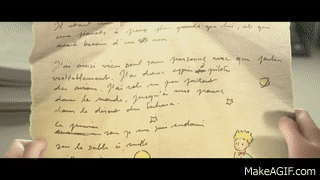 Il était
une planète à peine plus grande que lui, et qui
avait besoin d'un ami
J'ai ainsi vécu seul sans personne avec qui parler
véritablement. J'ai donc appris à piloter
des avions. J'ai volé un peu partout
dans le monde, jusqu'à une panne
dans le désert du Sahara.
Le premier
soir je me suis endormi
sur le sable à mille
MakeAGIF.com